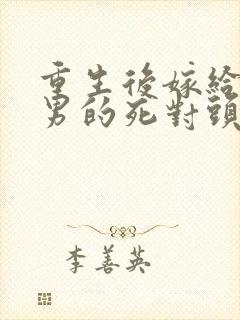 重生後嫁給
男的死對頭
李善英